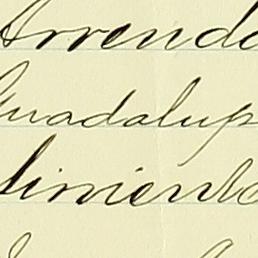 Arrenda
Guadalup
limiento